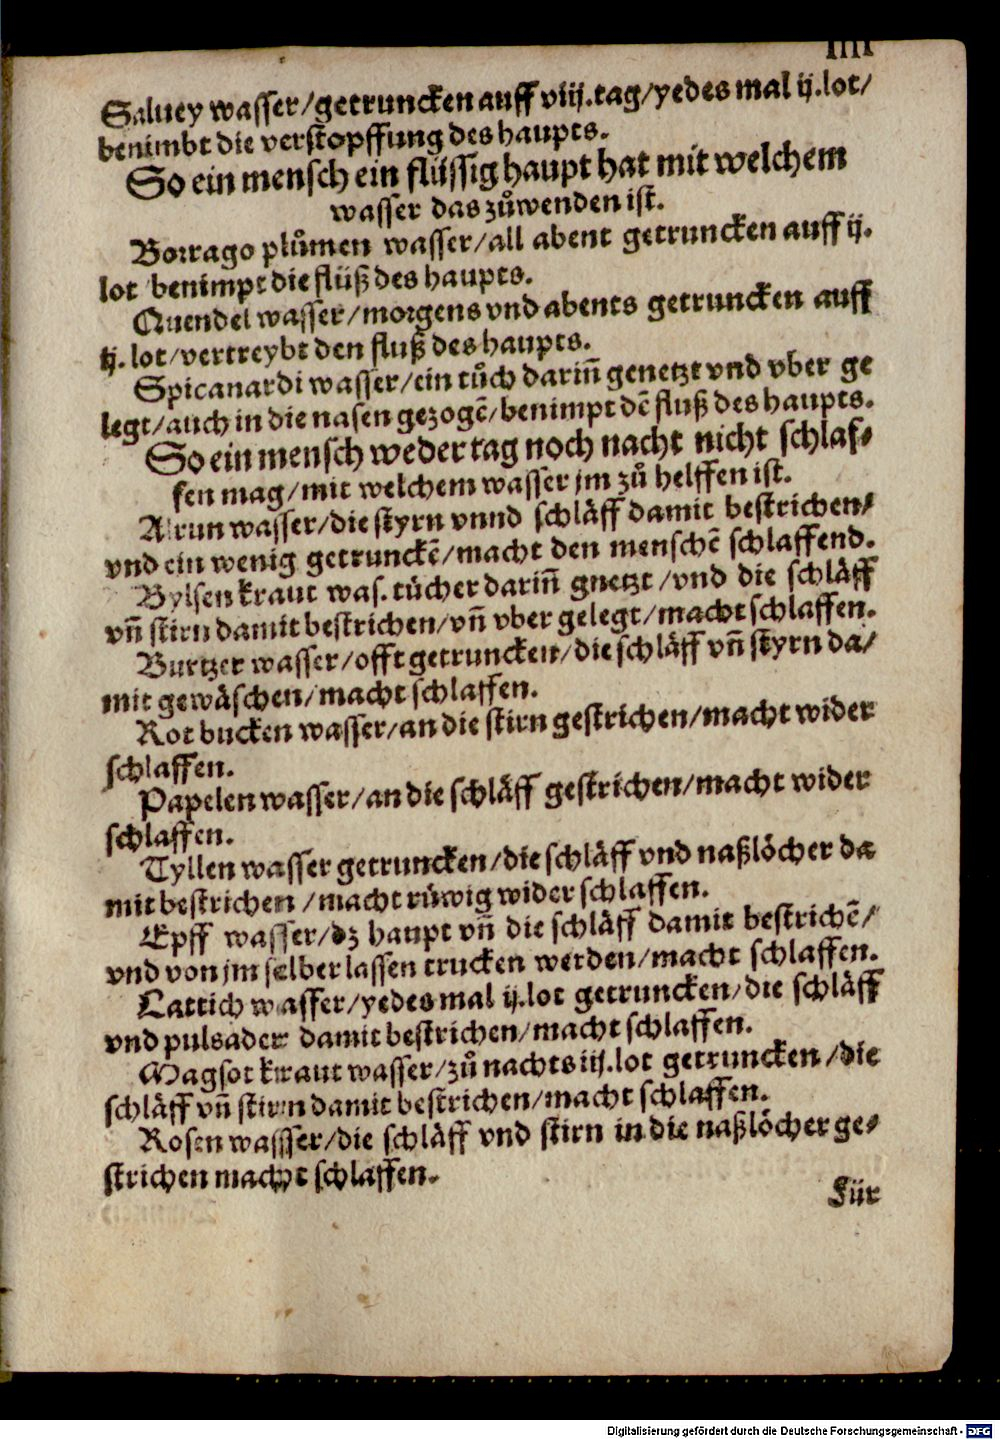 IIII
Saluey wasser/getruncken auff viij.tag/yedes mal ij.lot/
benimbt die verstopffung des haupts.
So ein mensch ein flüssig haupt hat mit welchem
wasser das zůwenden ist.
Borrago plůmen wasser/all abent getruncken auff ij.
lot benimpt die flüß des haupts.
Quendel wasser/morgens vnd abents getruncken auff
ij.lot/vertreybt den fluß des haupts.
Spicanardi wasser/ein tůch dariñ genetzt vnd vber ge
legt/auch in die nasen gezogẽ/benimpt dẽ fluß des haupts.
So ein mensch weder tag noch nacht nicht schlaf-
fen mag/mit welchem wasser jm zů helffen ist.
Alrun wasser/die styrn vnnd schläff damit bestrichen/
vnd ein wenig getrunckẽ/macht den menschẽ schlaffend.
Bylsen kraut was. tücher dariñ gnetzt/vnd die schläff
vñ stirn damit bestrichen/vñ vber gelegt/macht schlaffen.
Burtzer wasser/offt getruncken/die schläff vñ styrn da/
mit gewäschen/macht schlaffen.
Rot bucken wasser/an die stirn gestrichen/macht wider
schlaffen.
Papelen wasser/an die schläff gestrichen/macht wider
schlaffen.
Tyllen wasser getruncken/die schläff vnd naßlöcher da
mit bestrichen/macht rüwig wider schlaffen.
Epff wasser/dz haupt vñ die schläff damit bestrichẽ/
vnd von jm selber lassen trucken werden/macht schlaffen.
Lattich wasser/yedes mal ij.lot getruncken/die schläff
vnd pulsader damit bestrichen/macht schlaffen.
Magsot kraut wasser/zů nachts iij.lot getruncken/die
schläff vñ stirn damit bestrichen/macht schlaffen.
Rosen wassser/die schläff vnd stirn in die naßlöcher ge-
strichen macht schlaffen.
Für
Digitalisierung gefördert durch die Deutsche Forschungsgemeinschaft - DFG